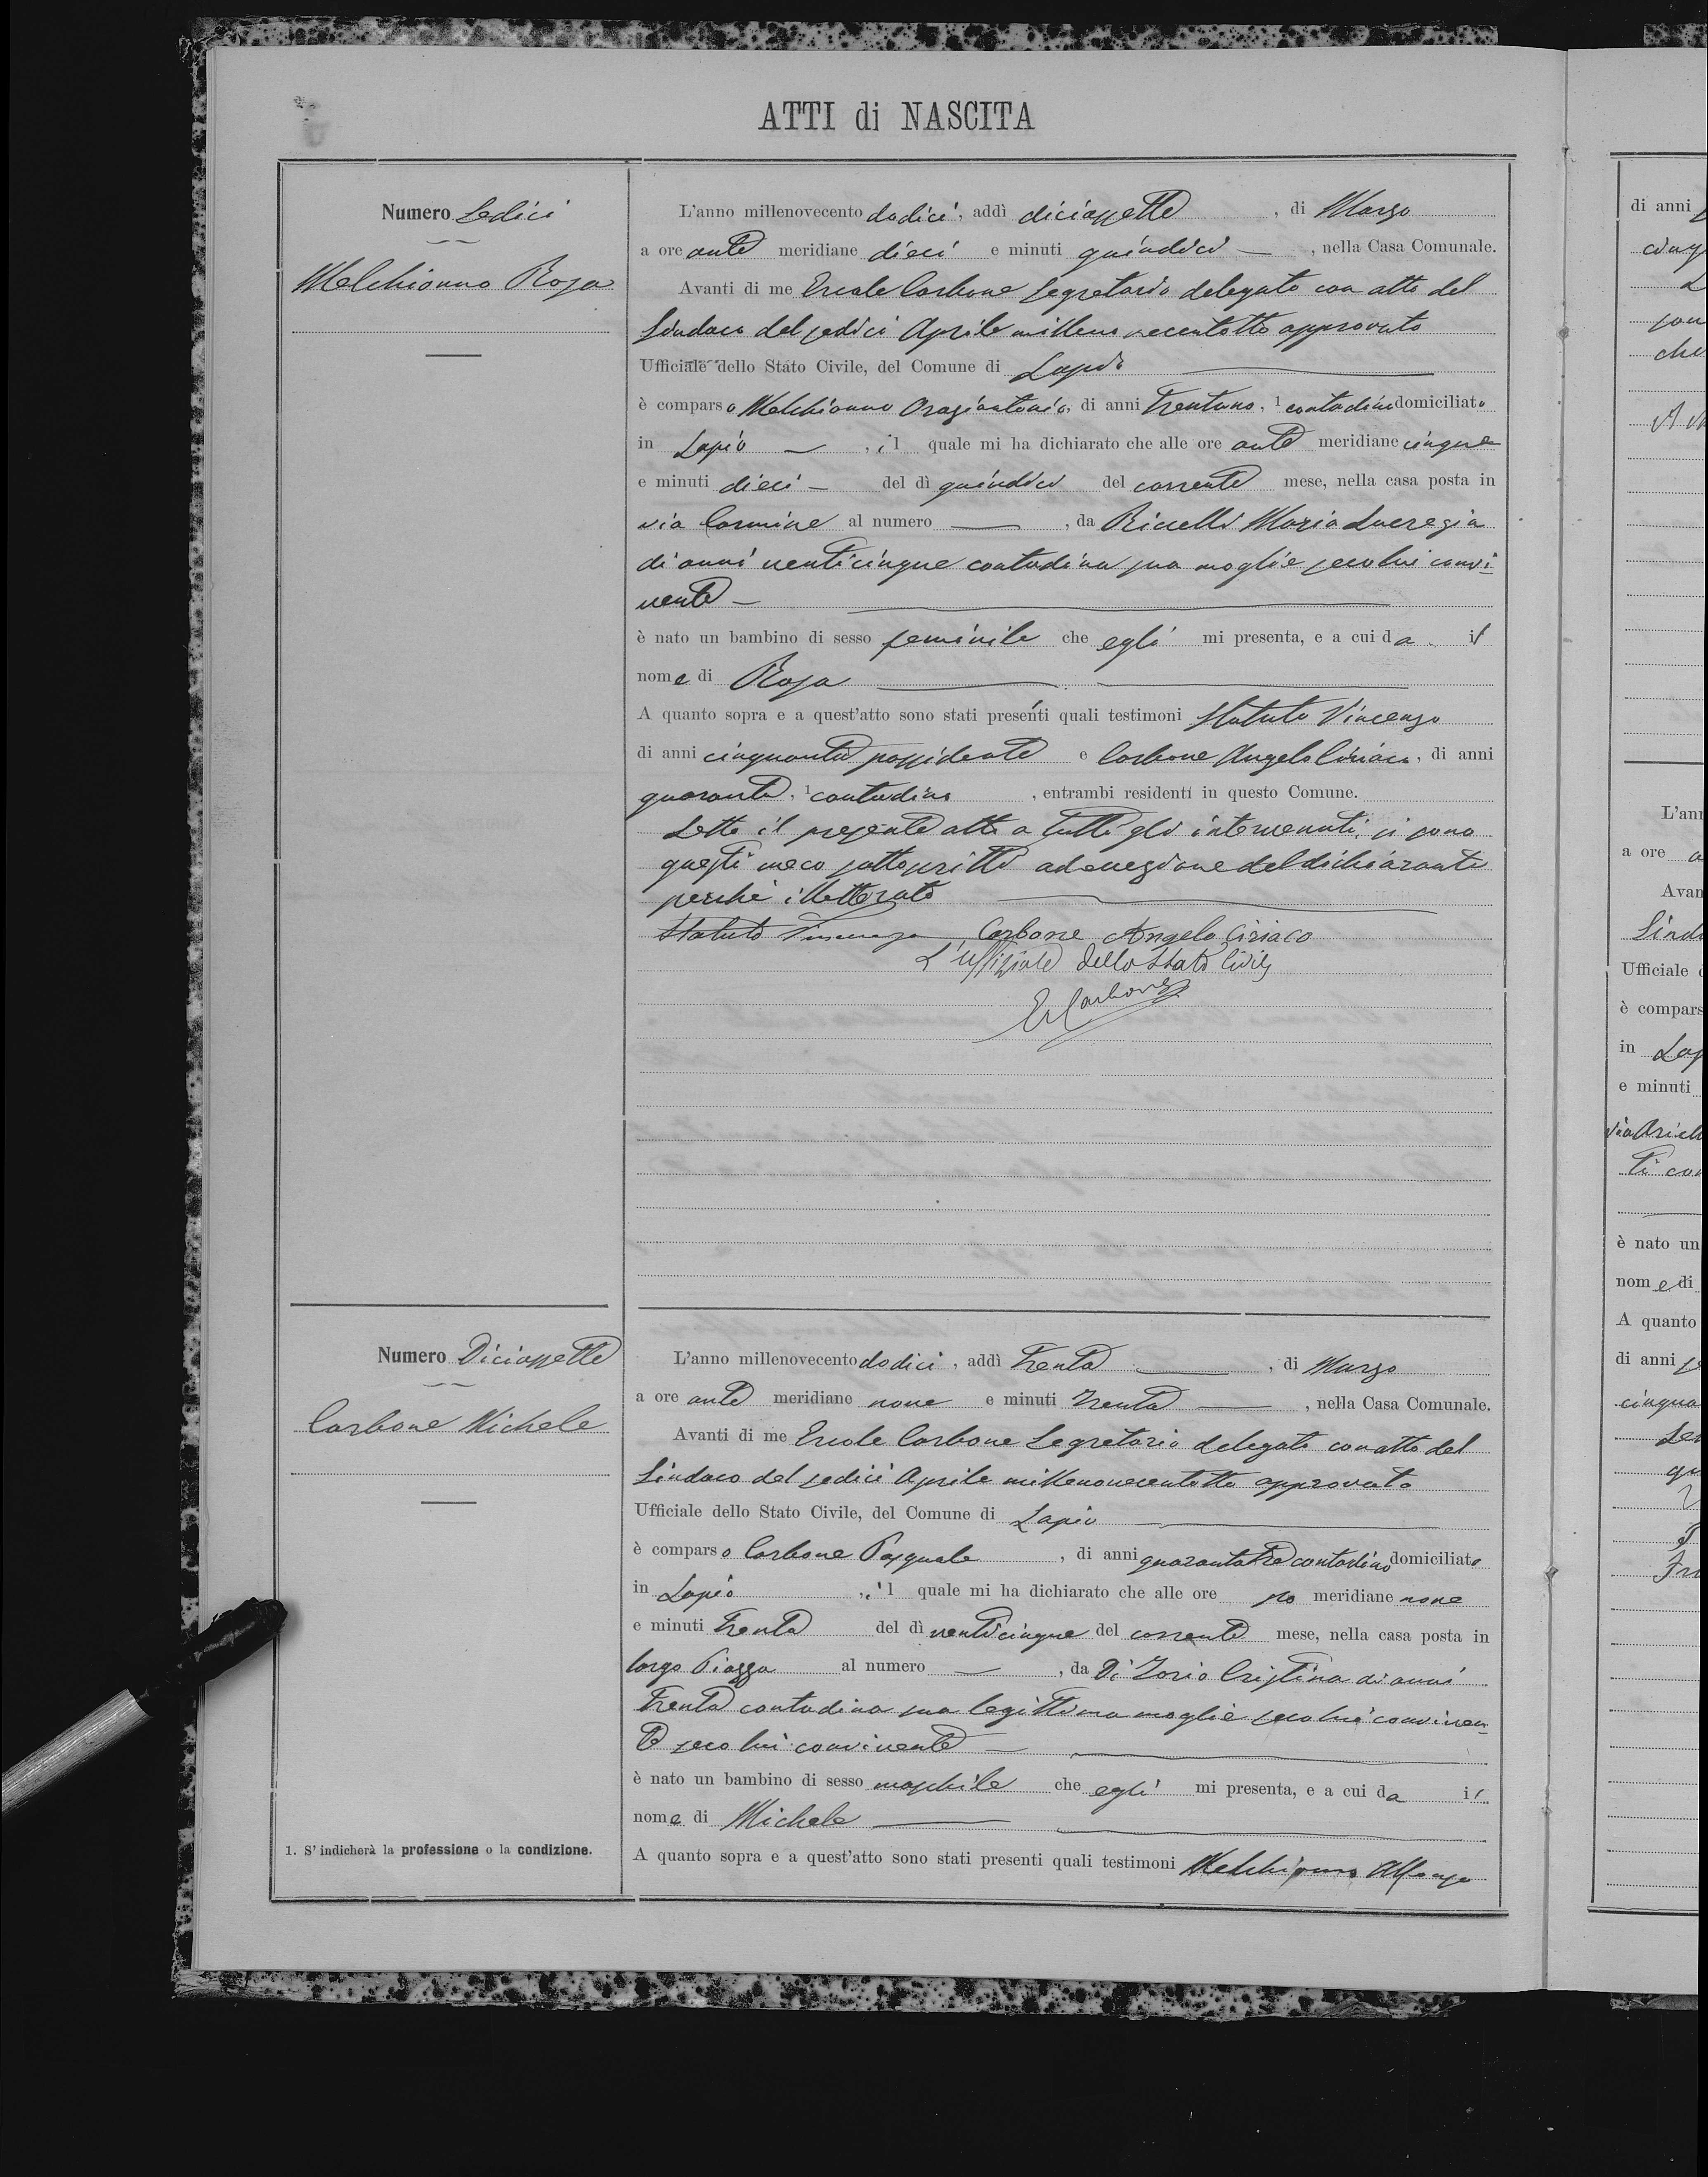 ATTI di NASCITA
Numero Sedici
Melchionno Rosa
L'anno millenovecento dodici, addì diciassette, di Marzo
a ore ante meridiane dieci e minuti quindici —, nella Casa Comunale.
Avanti di me Ercole Carbone Segretario delegato con atto del
Sindaco del sedici Aprile millenovecentotto approvato
Ufficiale dello Stato Civile, del Comune di Lapio
è comparso Melchionno Oraziantonio, di anni trentuno, 1 contadino domiciliato
in Lapio —, il quale mi ha dichiarato che alle ore ante meridiane cinque
e minuti dieci — del dì quindici del corrente mese, nella casa posta in
via Carmine al numero —, da Riccelli Maria Lucrezia
di anni venticinque contadina sua moglie seco lui convi-
vente —
è nato un bambino di sesso feminile che egli mi presenta, e a cui da il
nome di Rosa
A quanto sopra e a quest'atto sono stati presenti quali testimoni Statuto Vincenzo
di anni cinquanta possidente e Carbone Angelo Ciriaco, di anni
quaranta, 1 contadino, entrambi residenti in questo Comune.
Letto il presente atto a tutti gli intervenuti, si sono
questi meco sottoscritti ad eccezione del dichiarante
perchè illetterato
Statuto Vincenzo Carbone Angelo Ciriaco
L'uffiziale dello Stato Civile
E Carbone
Numero Diciassette
Carbone Michele
L'anno millenovecento dodici, addì trenta —, di Marzo
a ore ante meridiane nove e minuti trenta —, nella Casa Comunale.
Avanti di me Ercole Carbone Segretario delegato con atto del
Sindaco del sedici Aprile millenovecentotto approvato
Ufficiale dello Stato Civile, del Comune di Lapio
è comparso Carbone Pasquale, di anni quarantatre contadino domiciliato
in Lapio, il quale mi ha dichiarato che alle ore po meridiane nove
e minuti trenta del dì venticinque del corrente mese, nella casa posta in
largo Piazza al numero —, da Di Iorio Cristina di anni
trenta contadina sua legittima moglie seco lui conviven-
te seco lui convivente —
è nato un bambino di sesso maschile che egli mi presenta, e a cui da il
nome di Michele
A quanto sopra e a quest'atto sono stati presenti quali testimoni Melchionno Alfonso
1. S'indicherà la professione o la condizione.
di anni
che
L'an
a ore
Avan
Sind
Ufficiale
è compars
in Lap
e minuti
è nato un
nome di
A quanto
di anni
cinqua